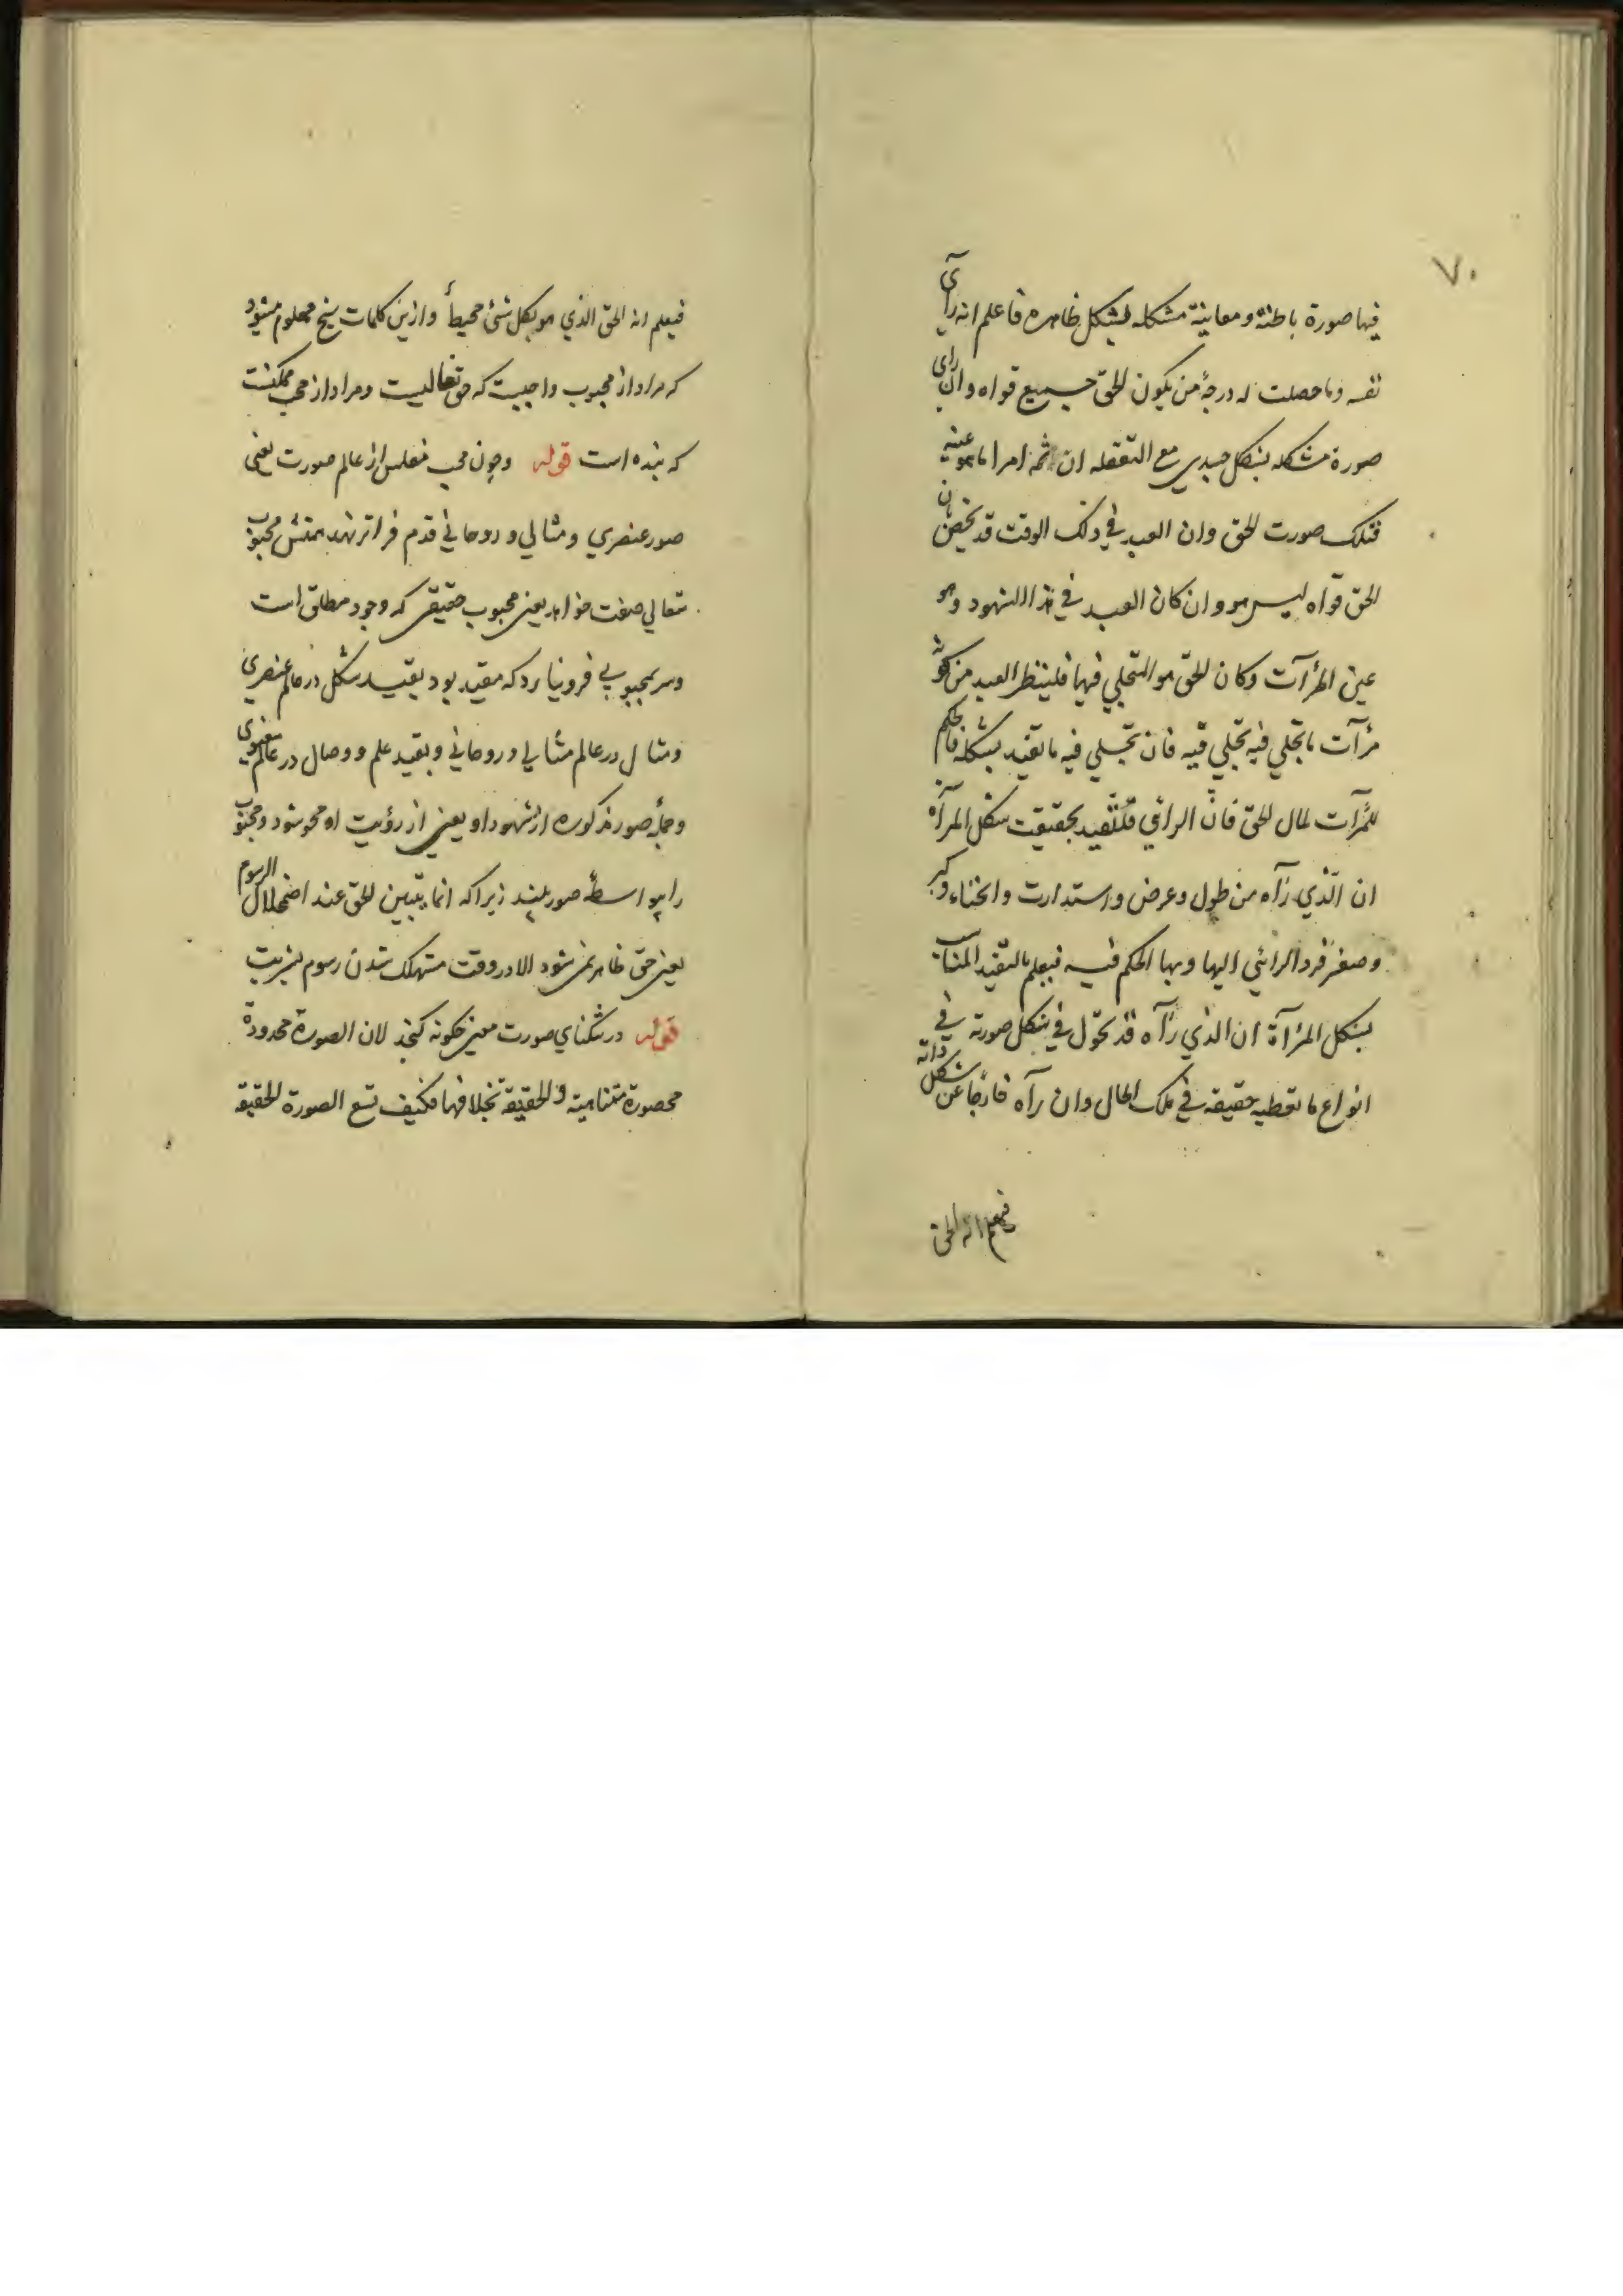 ٧٠
فيها صورة باطنة ومعانية مشكله بشكل ظاهره فاعلم انه رأى
نفسه وما حصلت له درجة من يكون الحق جميع قواه وان رأى
صورة مشكله بشكل جسدي مع التعقله ان ثمه امرا ما هو عينه
فتلك صورت الحق وان العبد في ذلك الوقت قد تحقق بان
الحق قواه ليس هو وان كان العبد في هذا الشهود وهو
عين المرآت وكان الحق هو المتجلي فيها فلينظر العبد من كونه
مرآت ما تجلي فيه تجلي فيه فان تجلي فيه ما تقيد بشكله فالحكم
للمرآت لمال الحق فان الرائي قد تقيد بحقيقت شكل المرآة
ان الذي رآه من طول وعرض واستدارت وانحناء وكبر
وصغر فرد الرائي اليها وبها الحكم فيه فيعلم بالتقيد المناسب
بشكل المرآة ان الذي رآه قد تحول في شكل صورته في
انواع ما تعطيه حقيقه في تلك الحال وان رآه خارجا عن شكل ذاته
فيعلم انه الحق
فيعلم انه الحق الذي هو بكل شئ محيط وازين كلمات شيخ معلوم ميشود
كه مراد از محبوب واجبيت كه حق تعاليست ومراد از محب ممكنست
كه بنده است قوله وچون محب مفلس از عالم صورت يعنى
صور عنصري ومثالي وروحاني قدم فراتر نهد همتش محبوب
متعالي صفت خواهد يعنى محبوب حقيقي كه وجود مطلق است
وسر بمحبوبي فرو نيارد كه مقيد بود بقيد شكل در عالم عنصري
ومثال در عالم مثالي وروحاني وبقيد علم ووصال در عالم معنوي
وجمله صور مذكوره از شهود او يعنى از رؤيت او محو شود ومحبوب
را بواسطه صور بيند زيرا كه انما يتبين الحق عند اضمحلال الرسوم
يعنى حق ظاهر نمى شود الا در وقت مستهلك شدن رسوم بشريت
قوله در تنكناي صورت معنى چكونه كنجد لان الصورة محدودة
محصورة متناهية والحقيقة بخلافها فكيف تسع الصورة الحقيقة